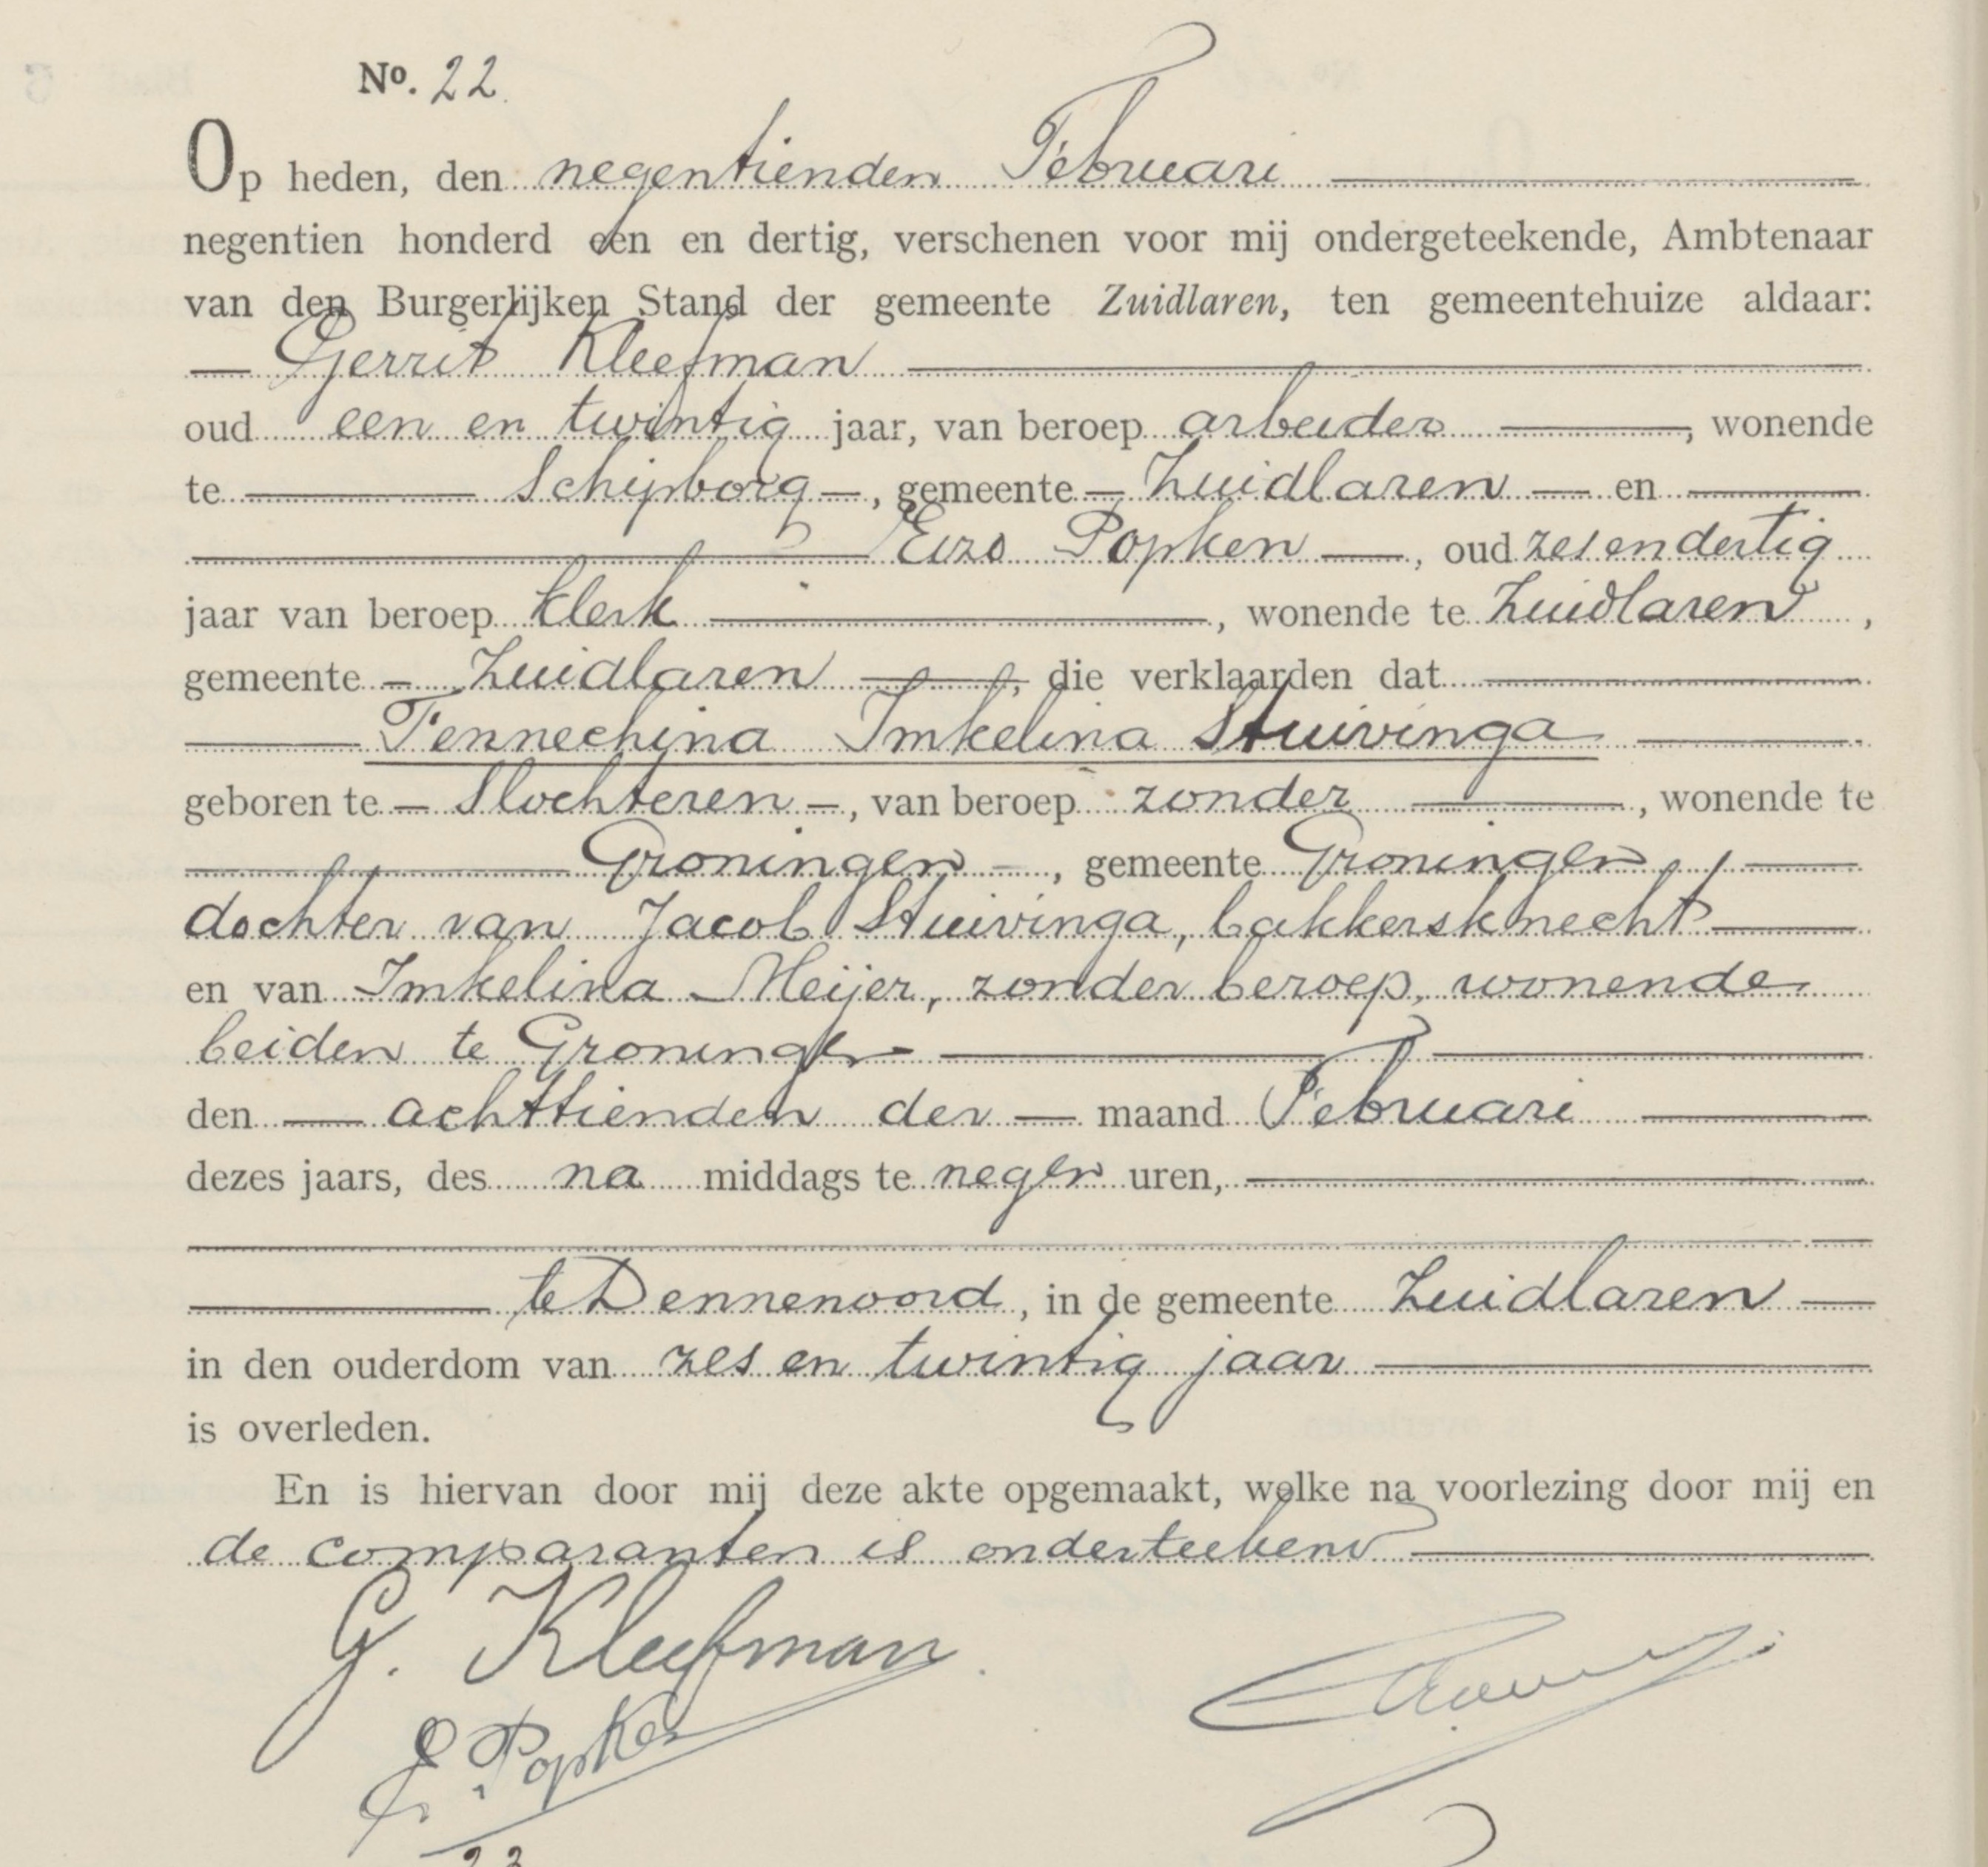 No. 22.
Op heden, den negentienden Februari
negentien honderd één en dertig, verschenen voor mij ondergeteekende, Ambtenaar
van den Burgerlijken Stand der gemeente Zuidlaren, ten gemeentehuize aldaar:
Gerrit Kleefman
oud een en twintig jaar, van beroep arbeider, wonende
te Schipborg, gemeente Zuidlaren en
Eizo Popken, oud zes en dertig
jaar van beroep klerk, wonende te Zuidlaren,
gemeente Zuidlaren, die verklaarden dat
Tennechina Imkelina Stuivinga
geboren te Slochteren, van beroep zonder, wonende te
Groningen, gemeente Groningen,
dochter van Jacob Stuivinga, bakkersknecht
en van Imkelina Meijer, zonder beroep, wonende
beiden te Groningen
den achttienden der maand Februari
dezes jaars, des na middags te negen uren,
te Dennenoord, in de gemeente Zuidlaren
in den ouderdom van zes en twintig jaar
is overleden.
En is hiervan door mij deze akte opgemaakt, welke na voorlezing door mij en
de comparanten is onderteekend
G. Kleefman
E. Popken